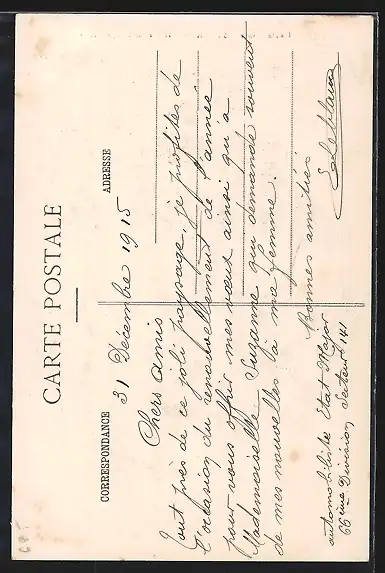 CARTE POSTALE
CORRESPONDANCE
ADRESSE
31 Décembre 1915
Chers amis
Tout près de ce joli paysage, je profites de
l'occasion du renouvellement de l'année
pour vous offrir mes vœux ainsi qu'à
Mademoiselle Suzanne qui demande souvent
de mes nouvelles à ma femme.
Bonnes amitiés
Leblanc
automobiliste Etat Major
66ième Division Secteur 141